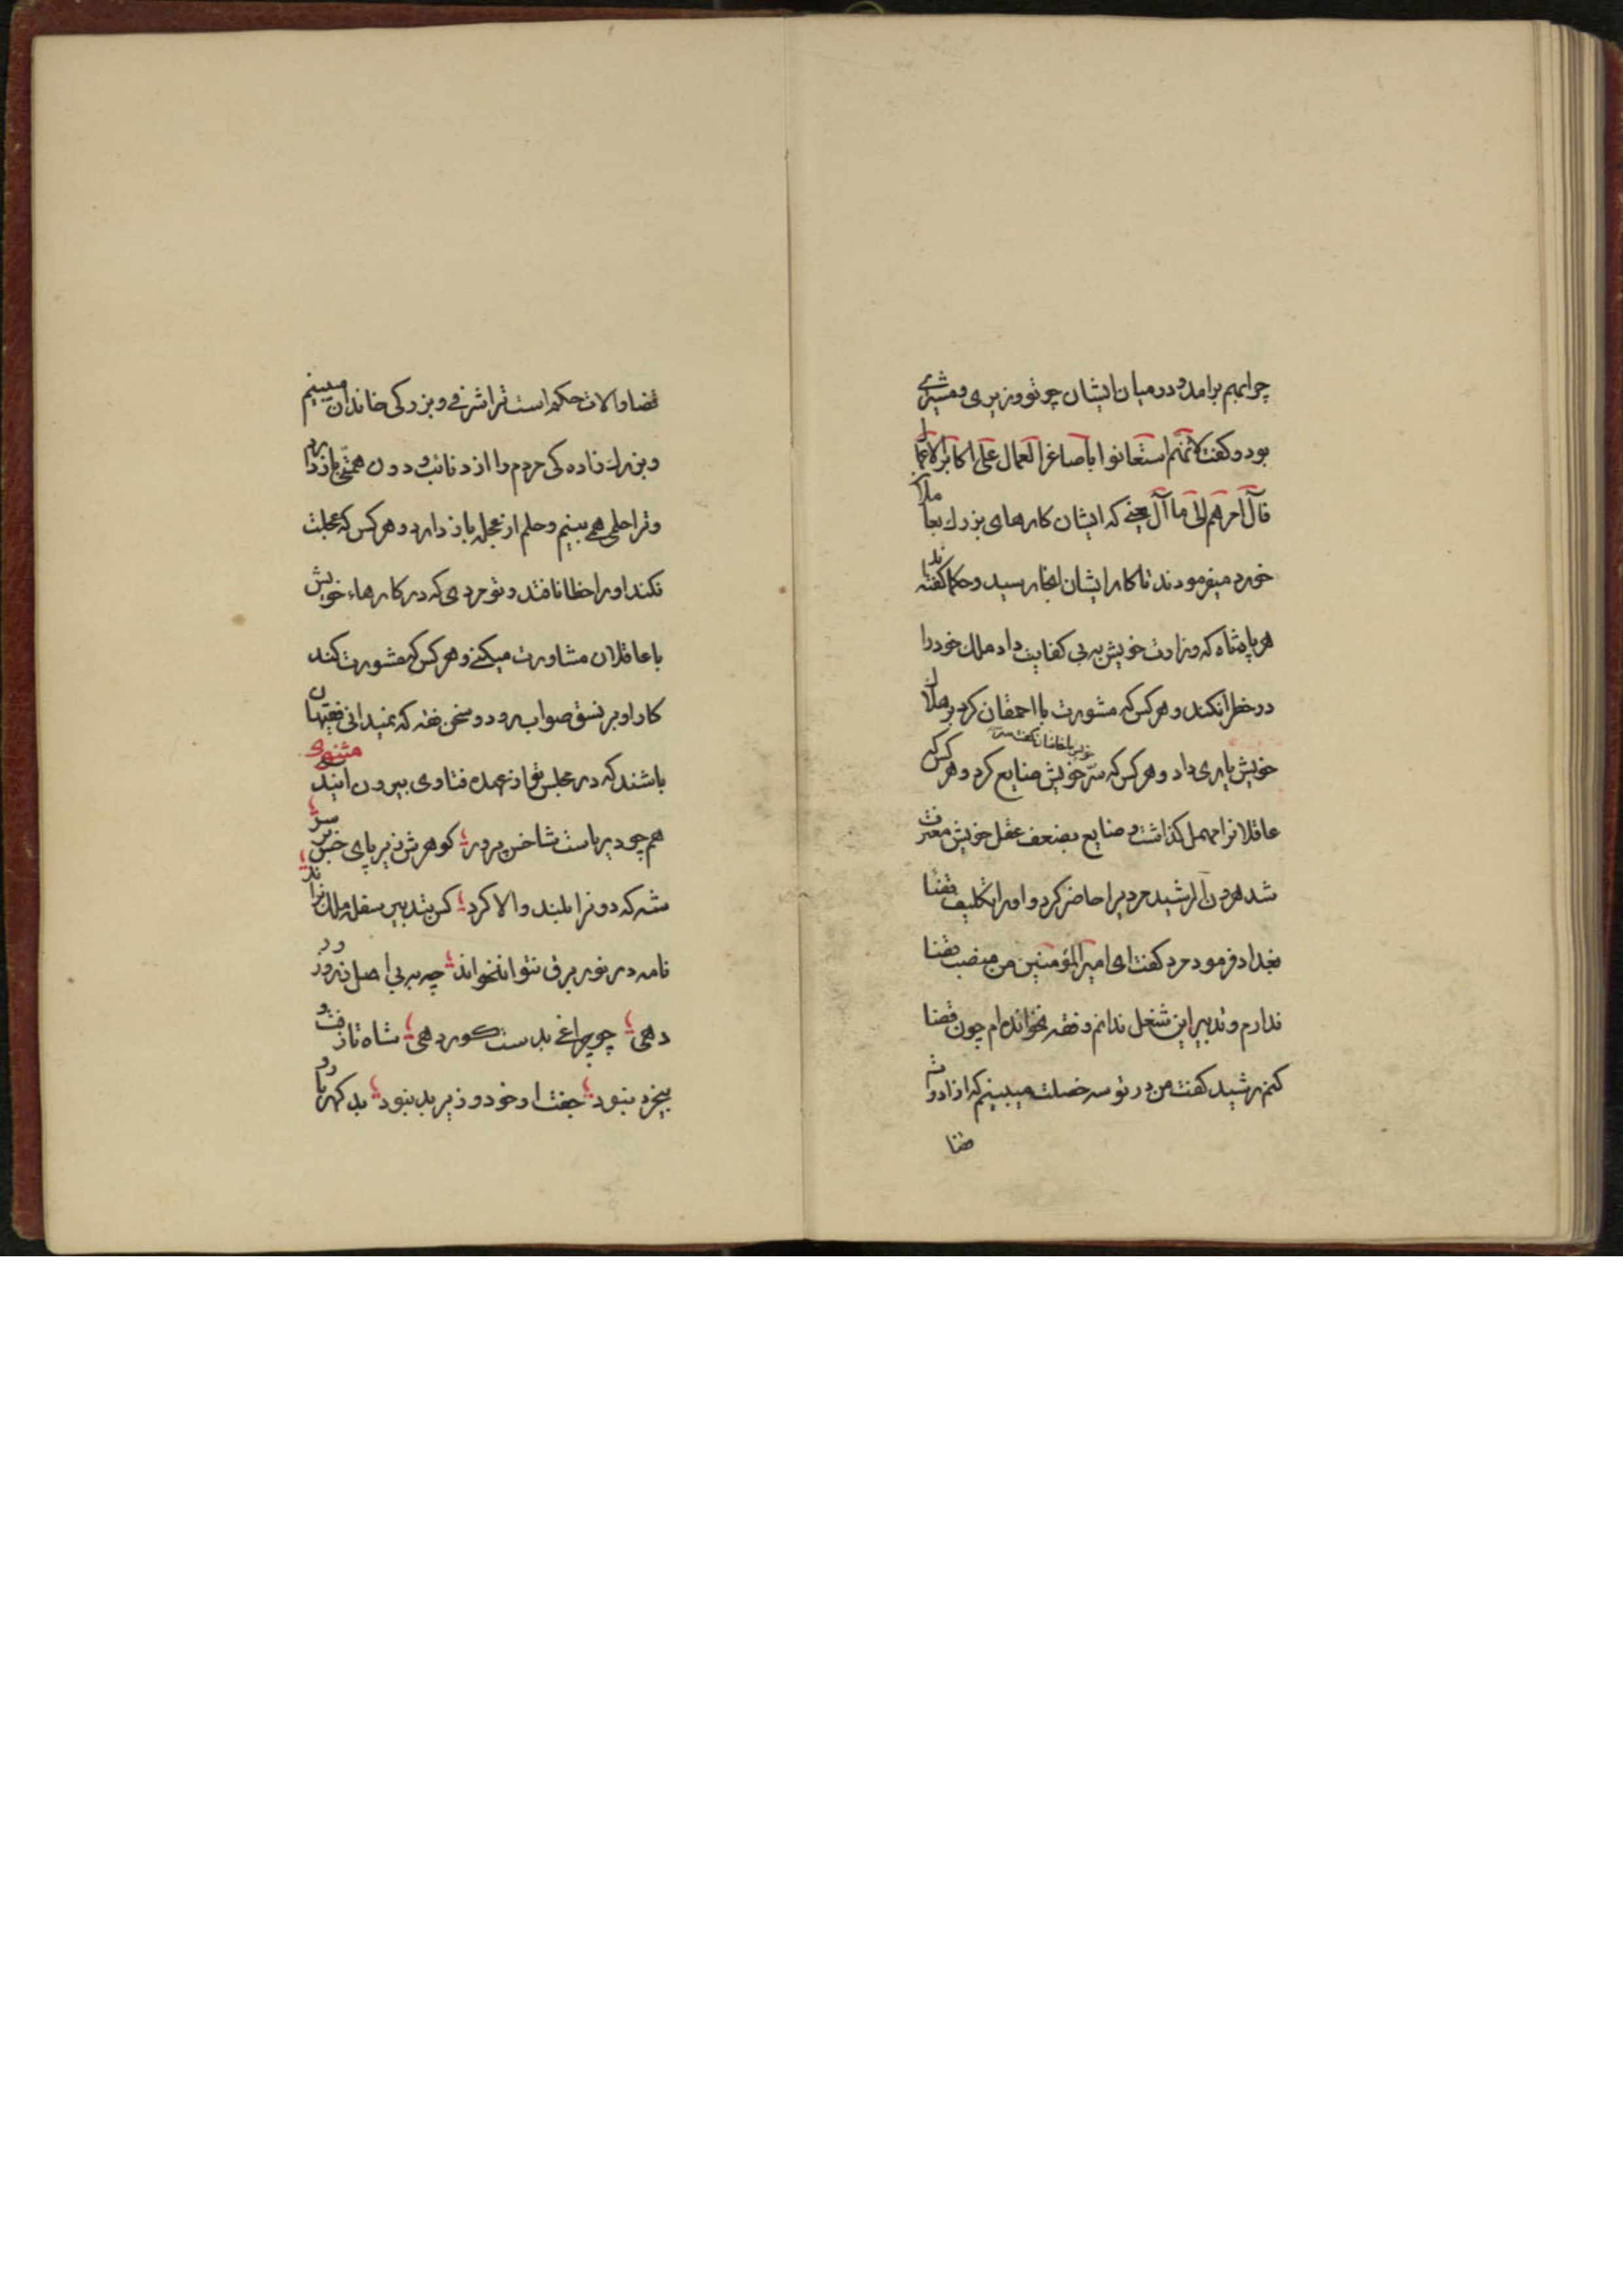 چرا بهم برامد و درمیان ایشان چو تو وزیری و مشیری
بود و کفت لانّهم استعانوا باصاغر العمال علی اکابر الاعمال
فآل امرهم الی ما آل یعنی که ایشان کارهای بزرك بعمال
خورد میفرمودند تا کار ایشان اینجا رسید و حکما کفته اند
هر پادشاه که وزارت خویش به بی کفایت داد ملك خود را
در خطر افکند و هر کس که مشورت با احمقان کرد بر هلاك
خویش یاری داد و هر کس که سرّ خویش ضایع کرد و هر کس که
عاقلانرا مهمل کذاشت و ضایع بضعف عقل خویش معترف
شد هرون الرشید مردیرا حاضر کرد و اورا تکلیف قضا
بغداد فرمود مرد کفت ای امیر المؤمنین من منصب قضا
ندارم و تدبیر این شغل ندانم و فقه نخوانده ام چون قضا
کنم رشید کفت من در تو سه خصلت میبینم که از ادوات
قضا
قضا و الات حکم است ترا شرفی و بزرکی خاندان میبینم
و بزرك زاده کی مردم را از دنائت و دون همتی باز دارد
و ترا حلمی همی بینم و حلم از عجله باز دارد و هر کس که عجلت
نکند اورا خطا نافتد و تو مردی که در کارهاء خویش
با عاقلان مشاورت میکنی و هر کس که مشورت کند
کار او بر نسق صواب رود و سخن فقه که نمیدانی فقیهان
باشند که در مجلس تو از عهده فتاوی بیرون ایند مثنوی
هم چو دریاست شاخس پرور کوهرش زیر پای خس بر سر
شه که دونرا بلند و والا کرد کس بتدبیر سفله ملك نراند
نامه در نور برق نتوان خواند چه به بی اصل زر و زور
دهی چو چراغی بدست کور دهی شاه تا زفت و
بیخرد نبود جفت او خود وزیر بد نبود بد کهر با